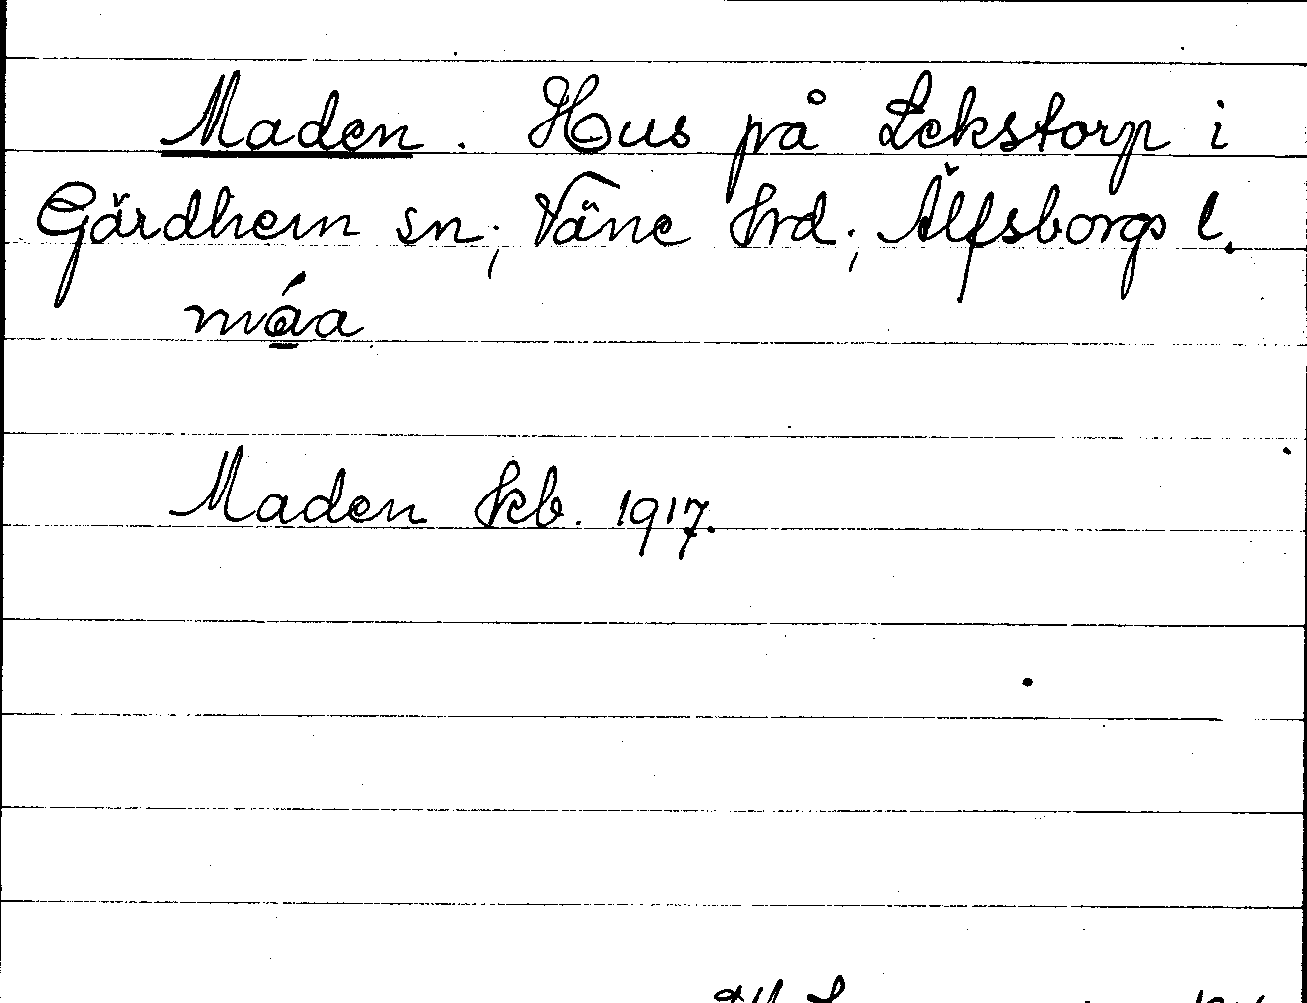 Maden. Hus på Lekstorp i
Gärdhem sn; Väne hrd; Älfsborgs l.
máa
Maden kb. 1917.